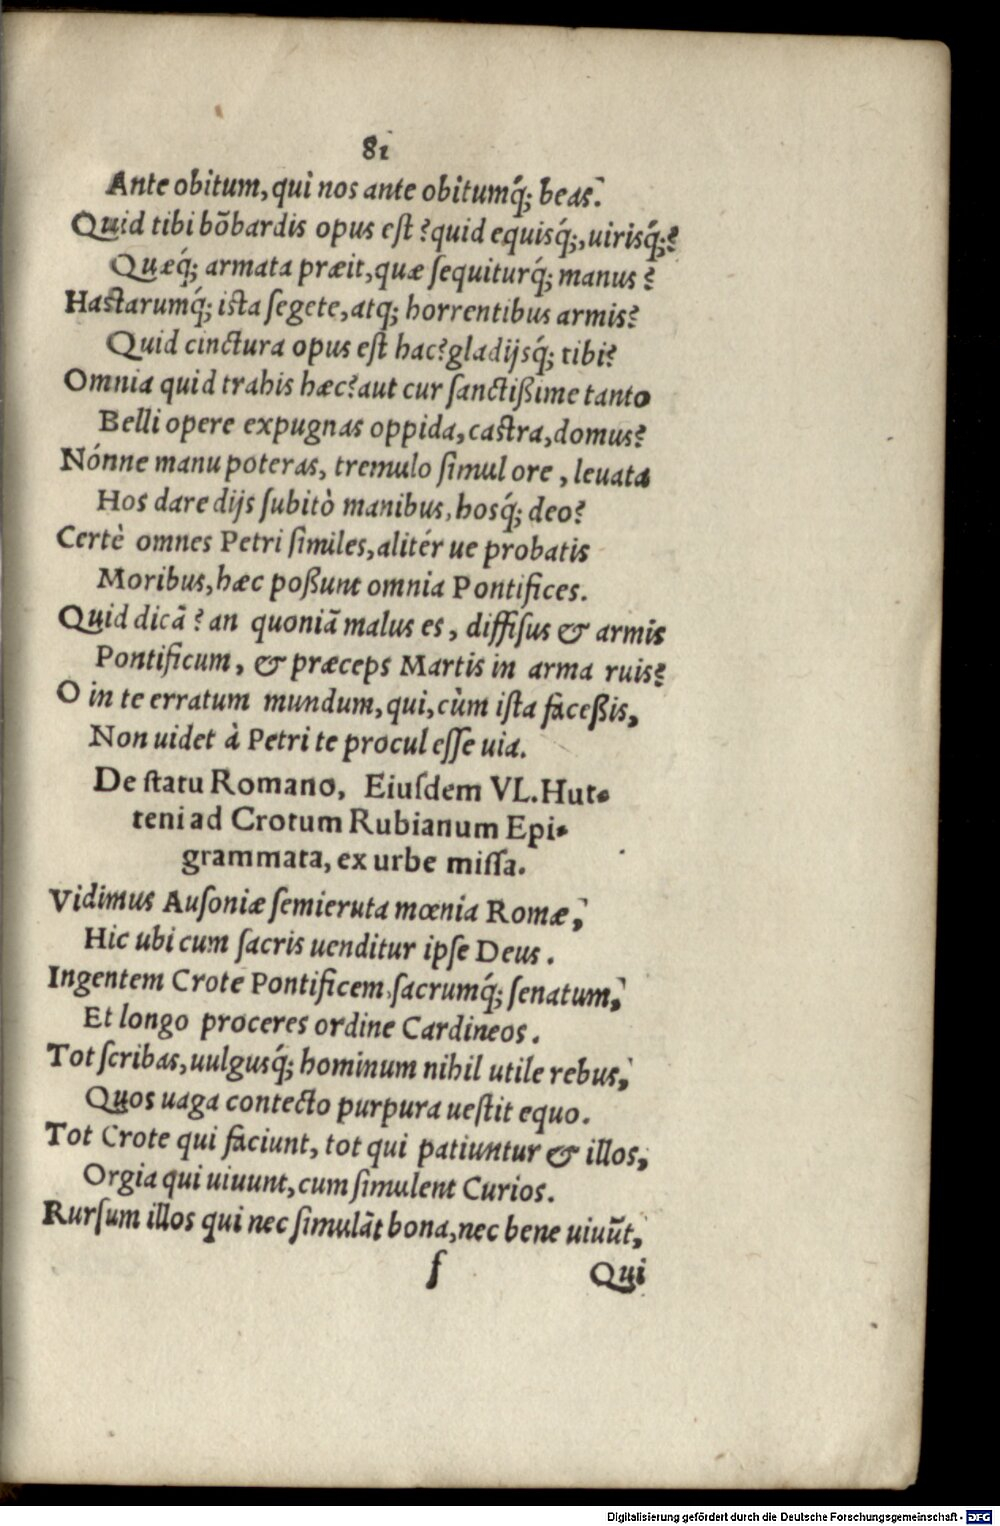 81
Ante obitum, qui nos ante obitumq́; beas.
Quid tibi bõbardis opus eſt? quid equisq́;, uirisq́;?
Quæq́; armata præit, quæ ſequiturq́; manus?
Haſtarumq́; iſta ſegete, atq; horrentibus armis?
Quid cinctura opus eſt hac? gladijsq́; tibi?
Omnia quid trahis hæc? aut cur ſanctißime tanto
Belli opere expugnas oppida, caſtra, domus?
Nónne manu poteras, tremulo ſimul ore, leuata
Hos dare dijs ſubitò manibus, hosq́; deo?
Certè omnes Petri ſimiles, alitér ue probatis
Moribus, hæc poßunt omnia Pontifices.
Quid dicã? an quoniã malus es, diffiſus & armis
Pontificum, & præceps Martis in arma ruis?
O in te erratum mundum, qui, cùm iſta faceßis,
Non uidet à Petri te procul eſſe uia.
De ſtatu Romano, Eiuſdem VL. Hut-
teni ad Crotum Rubianum Epi-
grammata, ex urbe miſſa.
Vidimus Auſoniæ ſemieruta mœnia Romæ,
Hic ubi cum ſacris uenditur ipſe Deus.
Ingentem Crote Pontificem, ſacrumq́; ſenatum,
Et longo proceres ordine Cardineos.
Tot ſcribas, uulgusq́; hominum nihil utile rebus,
Quos uaga contecto purpura ueſtit equo.
Tot Crote qui faciunt, tot qui patiuntur & illos,
Orgia qui uiuunt, cum ſimulent Curios.
Rurſum illos qui nec ſimulãt bona, nec bene uiuũt,
f Qui
Digitalisierung gefördert durch die Deutsche Forschungsgemeinschaft - DFG